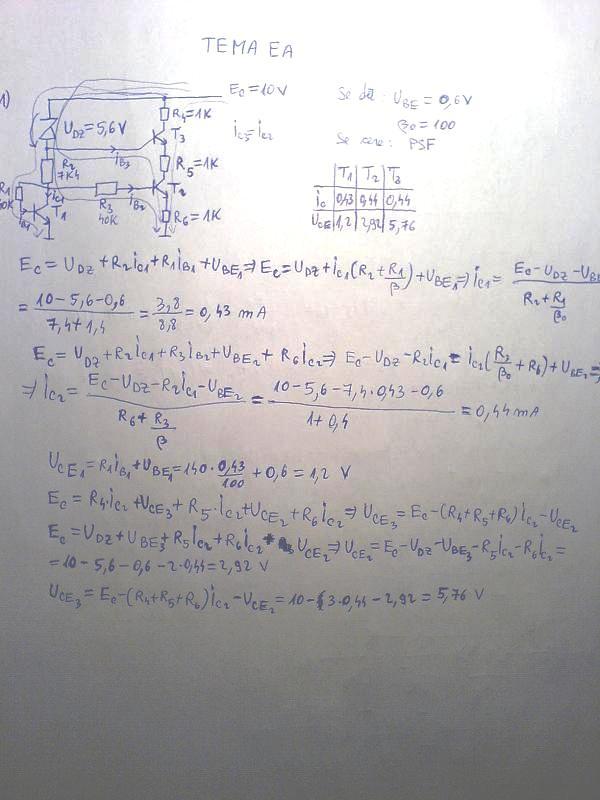 TEMA EA
1)
E_C = 10V
R4=1K
T3
U_DZ = 5,6 V
i_C3 = i_C2
Se dă: U_BE = 0,6V
β0 = 100
Se cere: PSF
i_B3
R2
7K4
R5=1K
i_C1
i_B2
T2
R1
i_B1
T1
R3
40K
R6=1K
T1 T2 T3
i_C 0,43 0,44 0,44
U_CE 1,2 2,92 5,76
E_C = U_DZ + R2 i_C1 + R1 i_B1 + U_BE1 ⇒ E_C = U_DZ + i_C1 (R2 + R1/β) + U_BE1 ⇒ i_C1 = (E_C - U_DZ - U_BE)/(R2 + R1/β0)
= (10 - 5,6 - 0,6)/(7,4 + 1,4) = 3,8/8,8 = 0,43 mA
E_C = U_DZ + R2 i_C1 + R3 i_B2 + U_BE2 + R6 i_C2 ⇒ E_C - U_DZ - R2 i_C1 = i_C2 (R3/β0 + R6) + U_BE2 ⇒
⇒ i_C2 = (E_C - U_DZ - R2 i_C1 - U_BE2)/(R6 + R3/β) = (10 - 5,6 - 7,4·0,43 - 0,6)/(1 + 0,4) = 0,44 mA
U_CE1 = R1 i_B1 + U_BE1 = 140·0,43/100 + 0,6 = 1,2 V
E_C = R4·i_C2 + U_CE3 + R5·i_C2 + U_CE2 + R6 i_C2 ⇒ U_CE3 = E_C - (R4 + R5 + R6) i_C2 - U_CE2
E_C = U_DZ + U_BE3 + R5 i_C2 + R6 i_C2 + U_CE2 ⇒ U_CE2 = E_C - U_DZ - U_BE3 - R5 i_C2 - R6 i_C2 =
= 10 - 5,6 - 0,6 - 2·0,44 = 2,92 V
U_CE3 = E_C - (R4 + R5 + R6) i_C2 - U_CE2 = 10 - 3·0,44 - 2,92 = 5,76 V